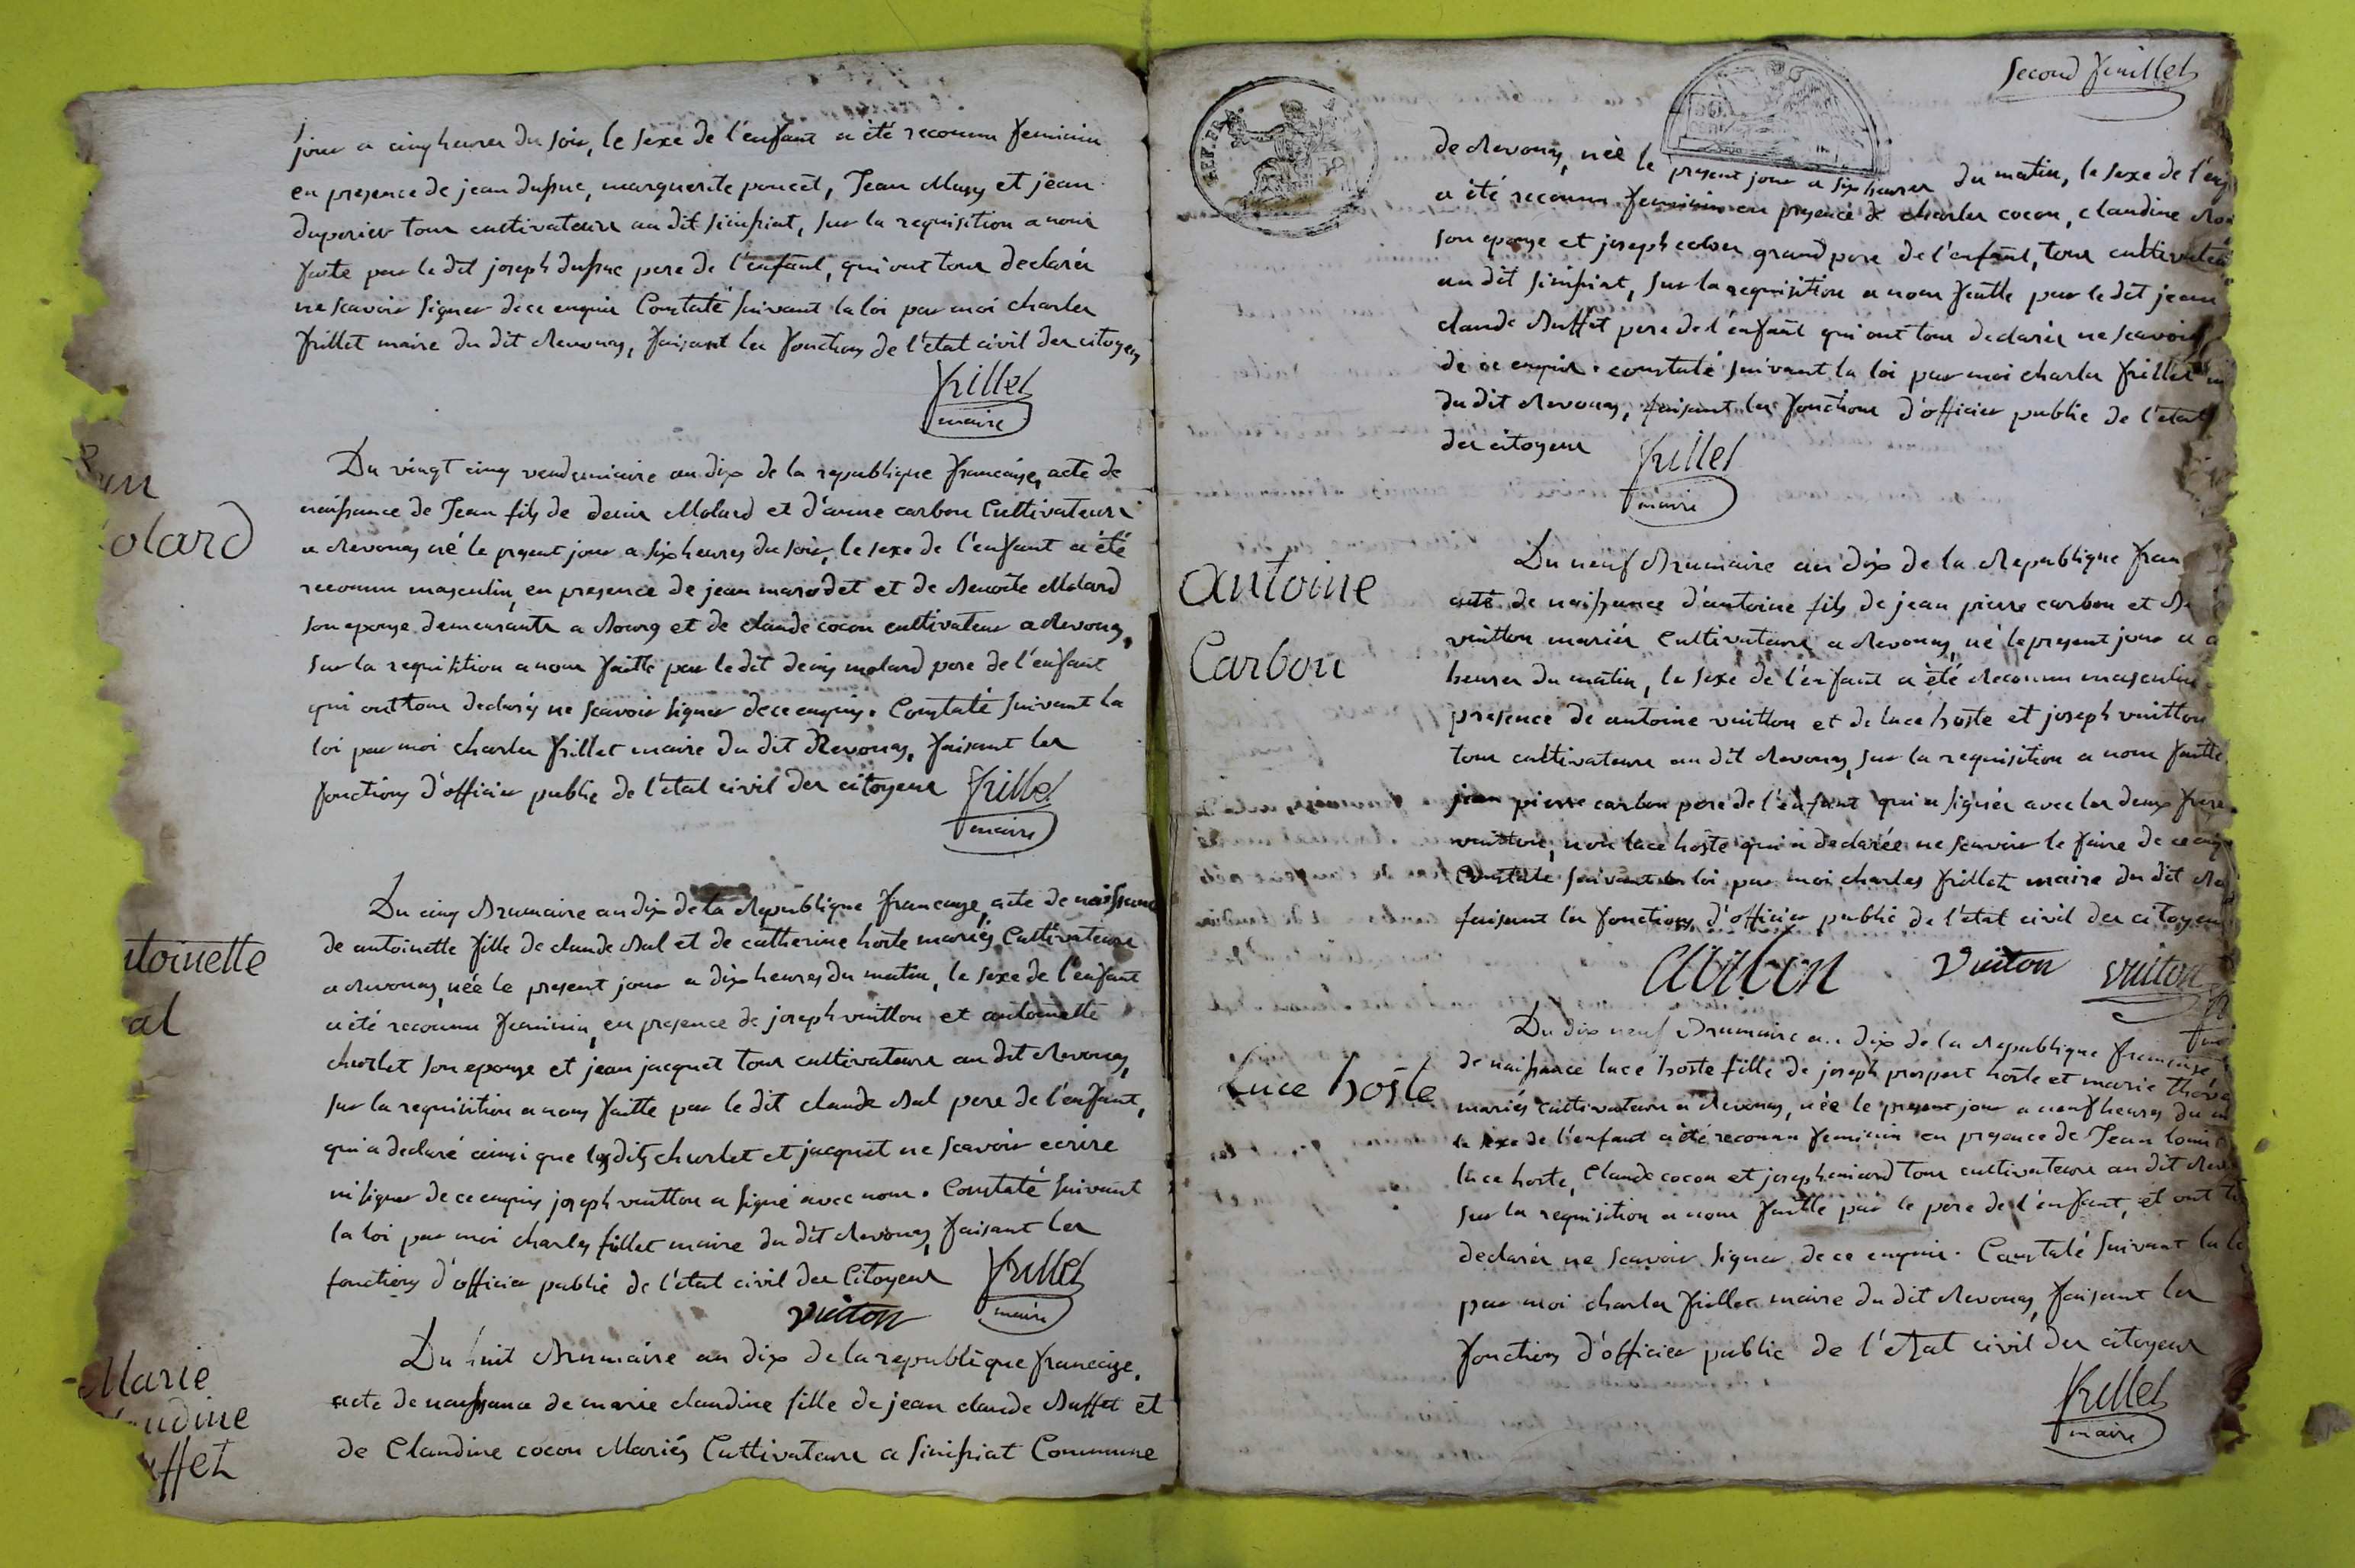 jour a cinq heures du soir, le sexe de l'enfant a été reconnu feminin
en presence de jean dufsuc, marguerite poncet, Jean Mary et jean
duperier tous cultivateurs au dit simfsiat, sur la requisition a nous
faite par le dit joseph dufsuc pere de l'enfant, qui ont tous declarés
ne scavoir signer de ce enquis Constaté suivant la loi par moi charles
frillet maire du dit Revonas, faisant les fonctions de l'etat civil des citoyens
frillet
maire
Jean
olard
Du vingt cinq vendemiaire an dix de la republique francaise, acte de
naissance de Jean fils de denis Molard et d'anne carbon Cultivateurs
a Revonas né le present jour a six heures du soir, le sexe de l'enfant a été
reconnu masculin, en presence de jean marodet et de Benoite Molard
son epouse demeurants a Bourg et de claude cocon cultivateur a Revonas,
sur la requisition a nous faitte par le dit denis molard pere de l'enfant
qui ont tous declarés ne scavoir signer de ce enquis. Constaté suivant la
loi par moi charles frillet maire du dit Revonas, faisant les
fonctions d'officier public de l'etat civil des citoyens frillet
maire
Du cinq Brumaire an dix de la Republique francaise, acte de naissance
de antoinette fille de claude Bal et de catherine hoste mariés Cultivateurs
a Revonas, née le present jour a dix heures du matin, le sexe de l'enfant
a été reconnu feminin, en presence de joseph vuitton et antoinette
churlet son epouse et jean jacquet tous cultivateurs au dit Revonas,
sur la requisition a nous faitte par le dit claude Bal pere de l'enfant,
qui a declaré ainsi que les dits churlet et jacquet ne scavoir ecrire
ni signer de ce enquis joseph vuitton a signé avec nous. Constaté suivant
la loi par moi charles frillet maire du dit Revonas, faisant les
fonctions d'officier public de l'etat civil des Citoyens frillet
vuiton maire
toinette
al
Du huit Brumaire an dix de la republique francaise,
acte de naissance de marie claudine fille de jean claude Buffet et
de Claudine cocon Mariés Cultivateurs a simfsiat Commune
Marie
udine
ffet
second feuillet
REP. FRA.
de Revonas, née le present jour a six heures du matin, le sexe de l'en
a été reconnu feminin en presence de charles cocon, claudine
son epouse et joseph cocon grand pere de l'enfant, tous cultivateu
au dit simfsiat, sur la requisition a nous faitte par le dit jean
claude Buffet pere de l'enfant qui ont tous declarés ne scavoir
de ce enquis. constaté suivant la loi par moi charles frillet
du dit Revonas, faisant les fonctions d'officier public de l'etat
des citoyens frillet
maire
antoine
Carbon
Du neuf Brumaire an dix de la Republique fran
acte de naissance d'antoine fils de jean pierre carbon et
vuitton mariés Cultivateurs a Revonas, né le present jour a
heures du matin, le sexe de l'enfant a été Reconnu masculin
presence de antoine vuitton et de luce hoste et joseph vuitton
tous cultivateurs au dit Revonas, sur la requisition a nous faitte
jean pierre carbon pere de l'enfant qui a signér avec les deux frere
vuitton, non luce hoste qui a declarée ne scavoir le faire de ce enq
Constaté suivant la loi par moi charles frillet maire du dit Re
faisant les fonctions d'officier public de l'etat civil des citoyens
Carbon vuiton vuiton
Luce hoste
Du dix neuf Brumaire an dix de la Republique francaise
de naissance luce hoste fille de joseph prospert hoste et marie
mariés cultivateurs a Revonas, née le present jour a neuf heures du
le sexe de l'enfant a été reconnu feminin en presence de Jean louis
luce hoste, Claude cocon et joseph miard tous cultivateurs au dit Rev
sur la requisition a nous faitte par le pere de l'enfant, et ont
declarés ne scavoir signer de ce enquis. Constaté suivant la
par moi charles frillet maire du dit Revonas, faisant les
fonctions d'officier public de l'etat civil des citoyens
frillet
maire